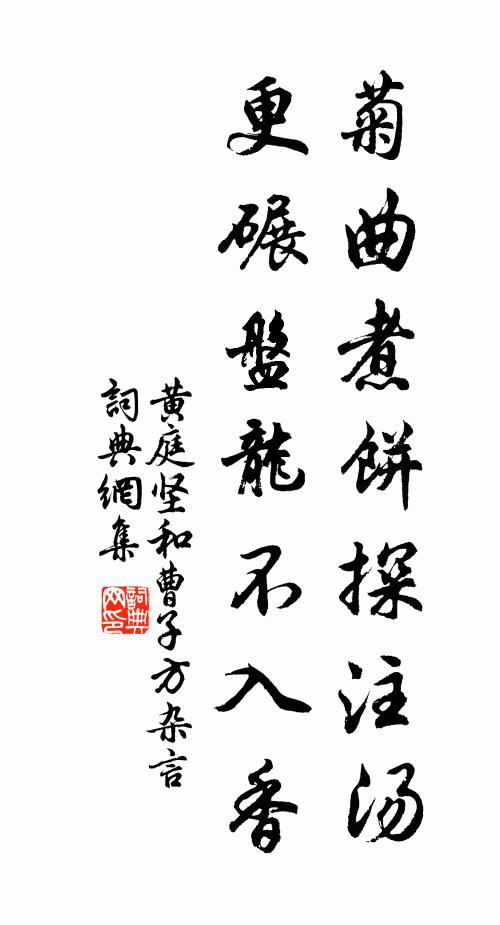 菊曲煮餅探注汤
更碾盤龍不入香
黄庭坚和曹子方杂言
詞典網集
詞典网印